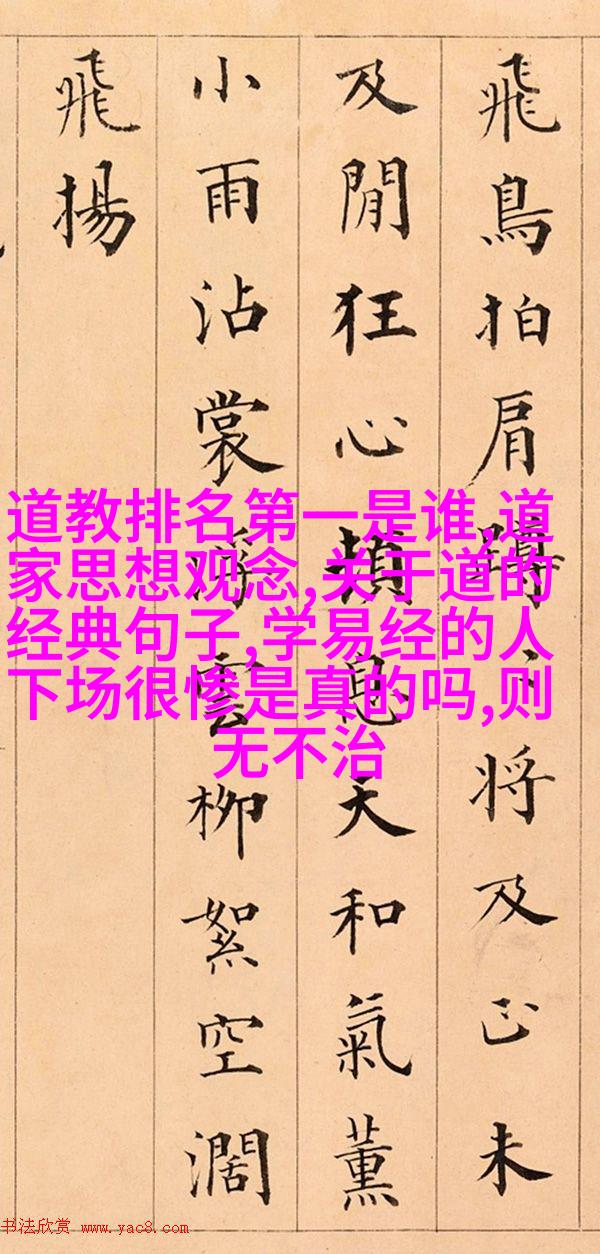 飛鳥拍肩蹲將及未
及閒狂心頓息天和氣薰
小雨沾裳浮雲柳絮空濶
飛揚
道教排名第一是谁,道
家思想观念,关于道的
经典句子,学易经的人
下场很惨是真的吗,则
无不治
书法欣赏 www.yac8.com